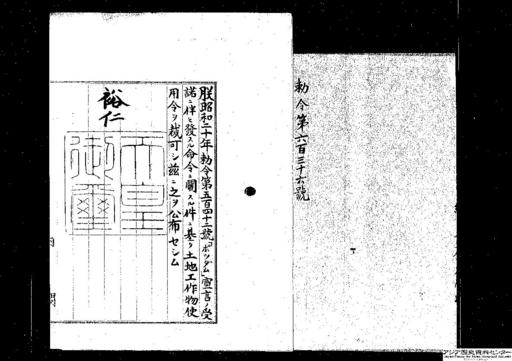 勅令第六百三十六號
朕昭和二十年勅令第五百四十二號「ポツダム」宣言ノ受
諾ニ伴ヒ發スル命令ニ關スル件ニ基ク土地工作物使
用令ヲ裁可シ茲ニ之ヲ公布セシム
裕仁
天皇
御璽
アジア歴史資料センター